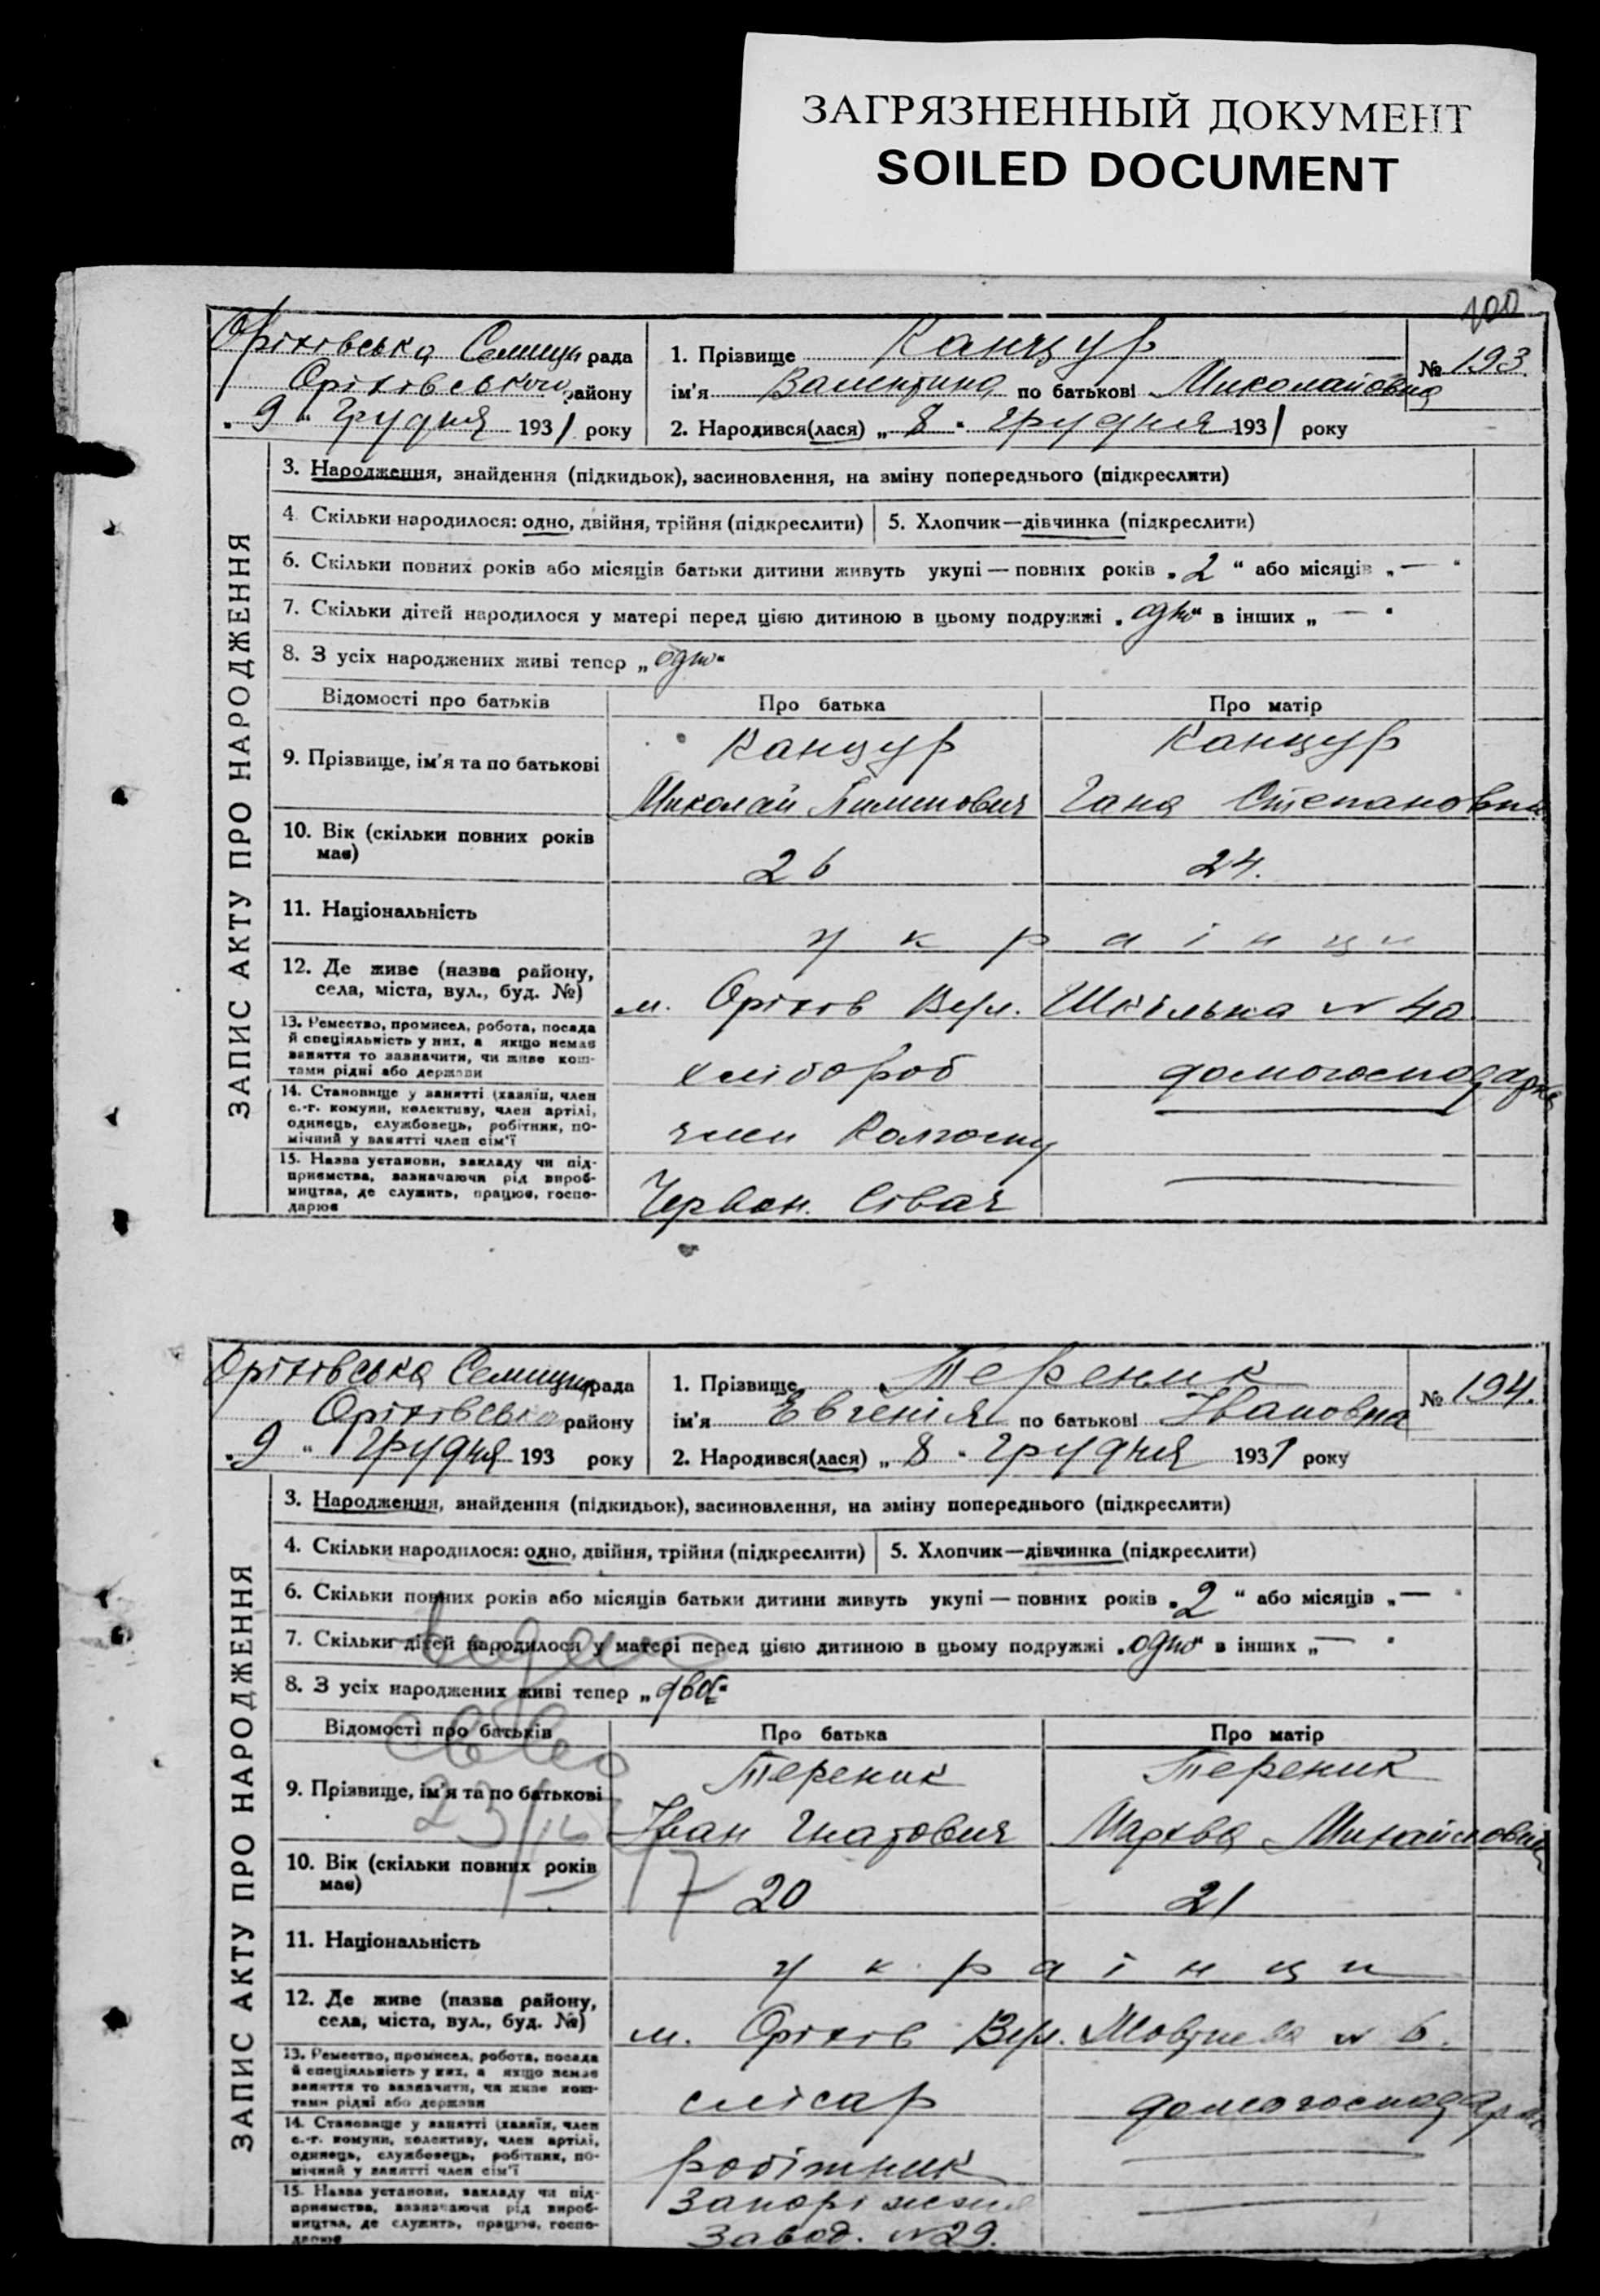 ЗАГРЯЗНЕННЫЙ ДОКУМЕНТ
SOILED DOCUMENT
200
Оріхівська Селищн рада
Оріхівського району
„ 9 “ Грудня 1931 року
1. Прізвище Канцур
ім'я Валентина по батькові Миколаївна
№ 193.
2. Народився(лася) „ 8 “ грудня 1931 року
ЗАПИС АКТУ ПРО НАРОДЖЕННЯ
3. Народження, знайдення (підкидьок), засиновлення, на зміну попереднього (підкреслити)
4. Скільки народилося: одно, двійня, трійня (підкреслити)
5. Хлопчик—дівчинка (підкреслити)
6. Скільки повних років або місяців батьки дитини живуть укупі — повних років „ 2 “ або місяців „ — “
7. Скільки дітей народилося у матері перед цією дитиною в цьому подружжі „ одно “ в інших „ — “
8. З усіх народжених живі тепер „ одно “
Відомості про батьків
Про батька
Про матір
9. Прізвище, ім'я та по батькові
Канцур
Канцур
Миколай Пименович
Гана Степановна
10. Вік (скільки повних років має)
26
24.
11. Національність
українци
12. Де живе (назва району, села, міста, вул., буд. №)
м. Оріхів Вул. Шкільна № 40
13. Ремество, промисел, робота, посада
й спеціяльність у них, а якщо немає
заняття то зазначити, чи живе кош-
тами рідні або держави
хлібороб
домогосподарка
14. Становище у занятті (хазяїн, член
с.-г. комуни, колективу, член артілі,
одинець, службовець, робітник, по-
мічний у занятті член сім'ї
член Колгоспу
15. Назва установи, закладу чи під-
приємства, зазначаючи рід вироб-
ництва, де служить, працює, госпо-
дарює
Червон. Сівач
Оріхівська Селищна рада
Оріхівсько району
„ 9 “ Грудня 193 року
1. Прізвище Тереник
ім'я Евгенія по батькові Івановна
№ 194.
2. Народився(лася) „ 8 “ грудня 1931 року
ЗАПИС АКТУ ПРО НАРОДЖЕННЯ
3. Народження, знайдення (підкидьок), засиновлення, на зміну попереднього (підкреслити)
4. Скільки народилося: одно, двійня, трійня (підкреслити)
5. Хлопчик—дівчинка (підкреслити)
6. Скільки повних років або місяців батьки дитини живуть укупі — повних років „ 2 “ або місяців „ — “
7. Скільки дітей народилося у матері перед цією дитиною в цьому подружжі „ одно “ в інших „ — “
8. З усіх народжених живі тепер „ двоє “
Відомості про батьків
Про батька
Про матір
9. Прізвище, ім'я та по батькові
Тереник
Тереник
Іван Гнатович
Мархва Михайловна
10. Вік (скільки повних років має)
20
21
11. Національність
українци
12. Де живе (назва району, села, міста, вул., буд. №)
м. Оріхів Вул. Жовтнева № 6.
13. Ремество, промисел, робота, посада
й спеціяльність у них, а якщо немає
заняття то зазначити, чи живе кош-
тами рідні або держави
слісар
домогосподарка
14. Становище у занятті (хазяїн, член
с.-г. комуни, колективу, член артілі,
одинець, службовець, робітник, по-
мічний у занятті член сім'ї
робітник
15. Назва установи, закладу чи під-
приємства, зазначаючи рід вироб-
ництва, де служить, працює, госпо-
дарює
Запоріжжя
Завод. №29.